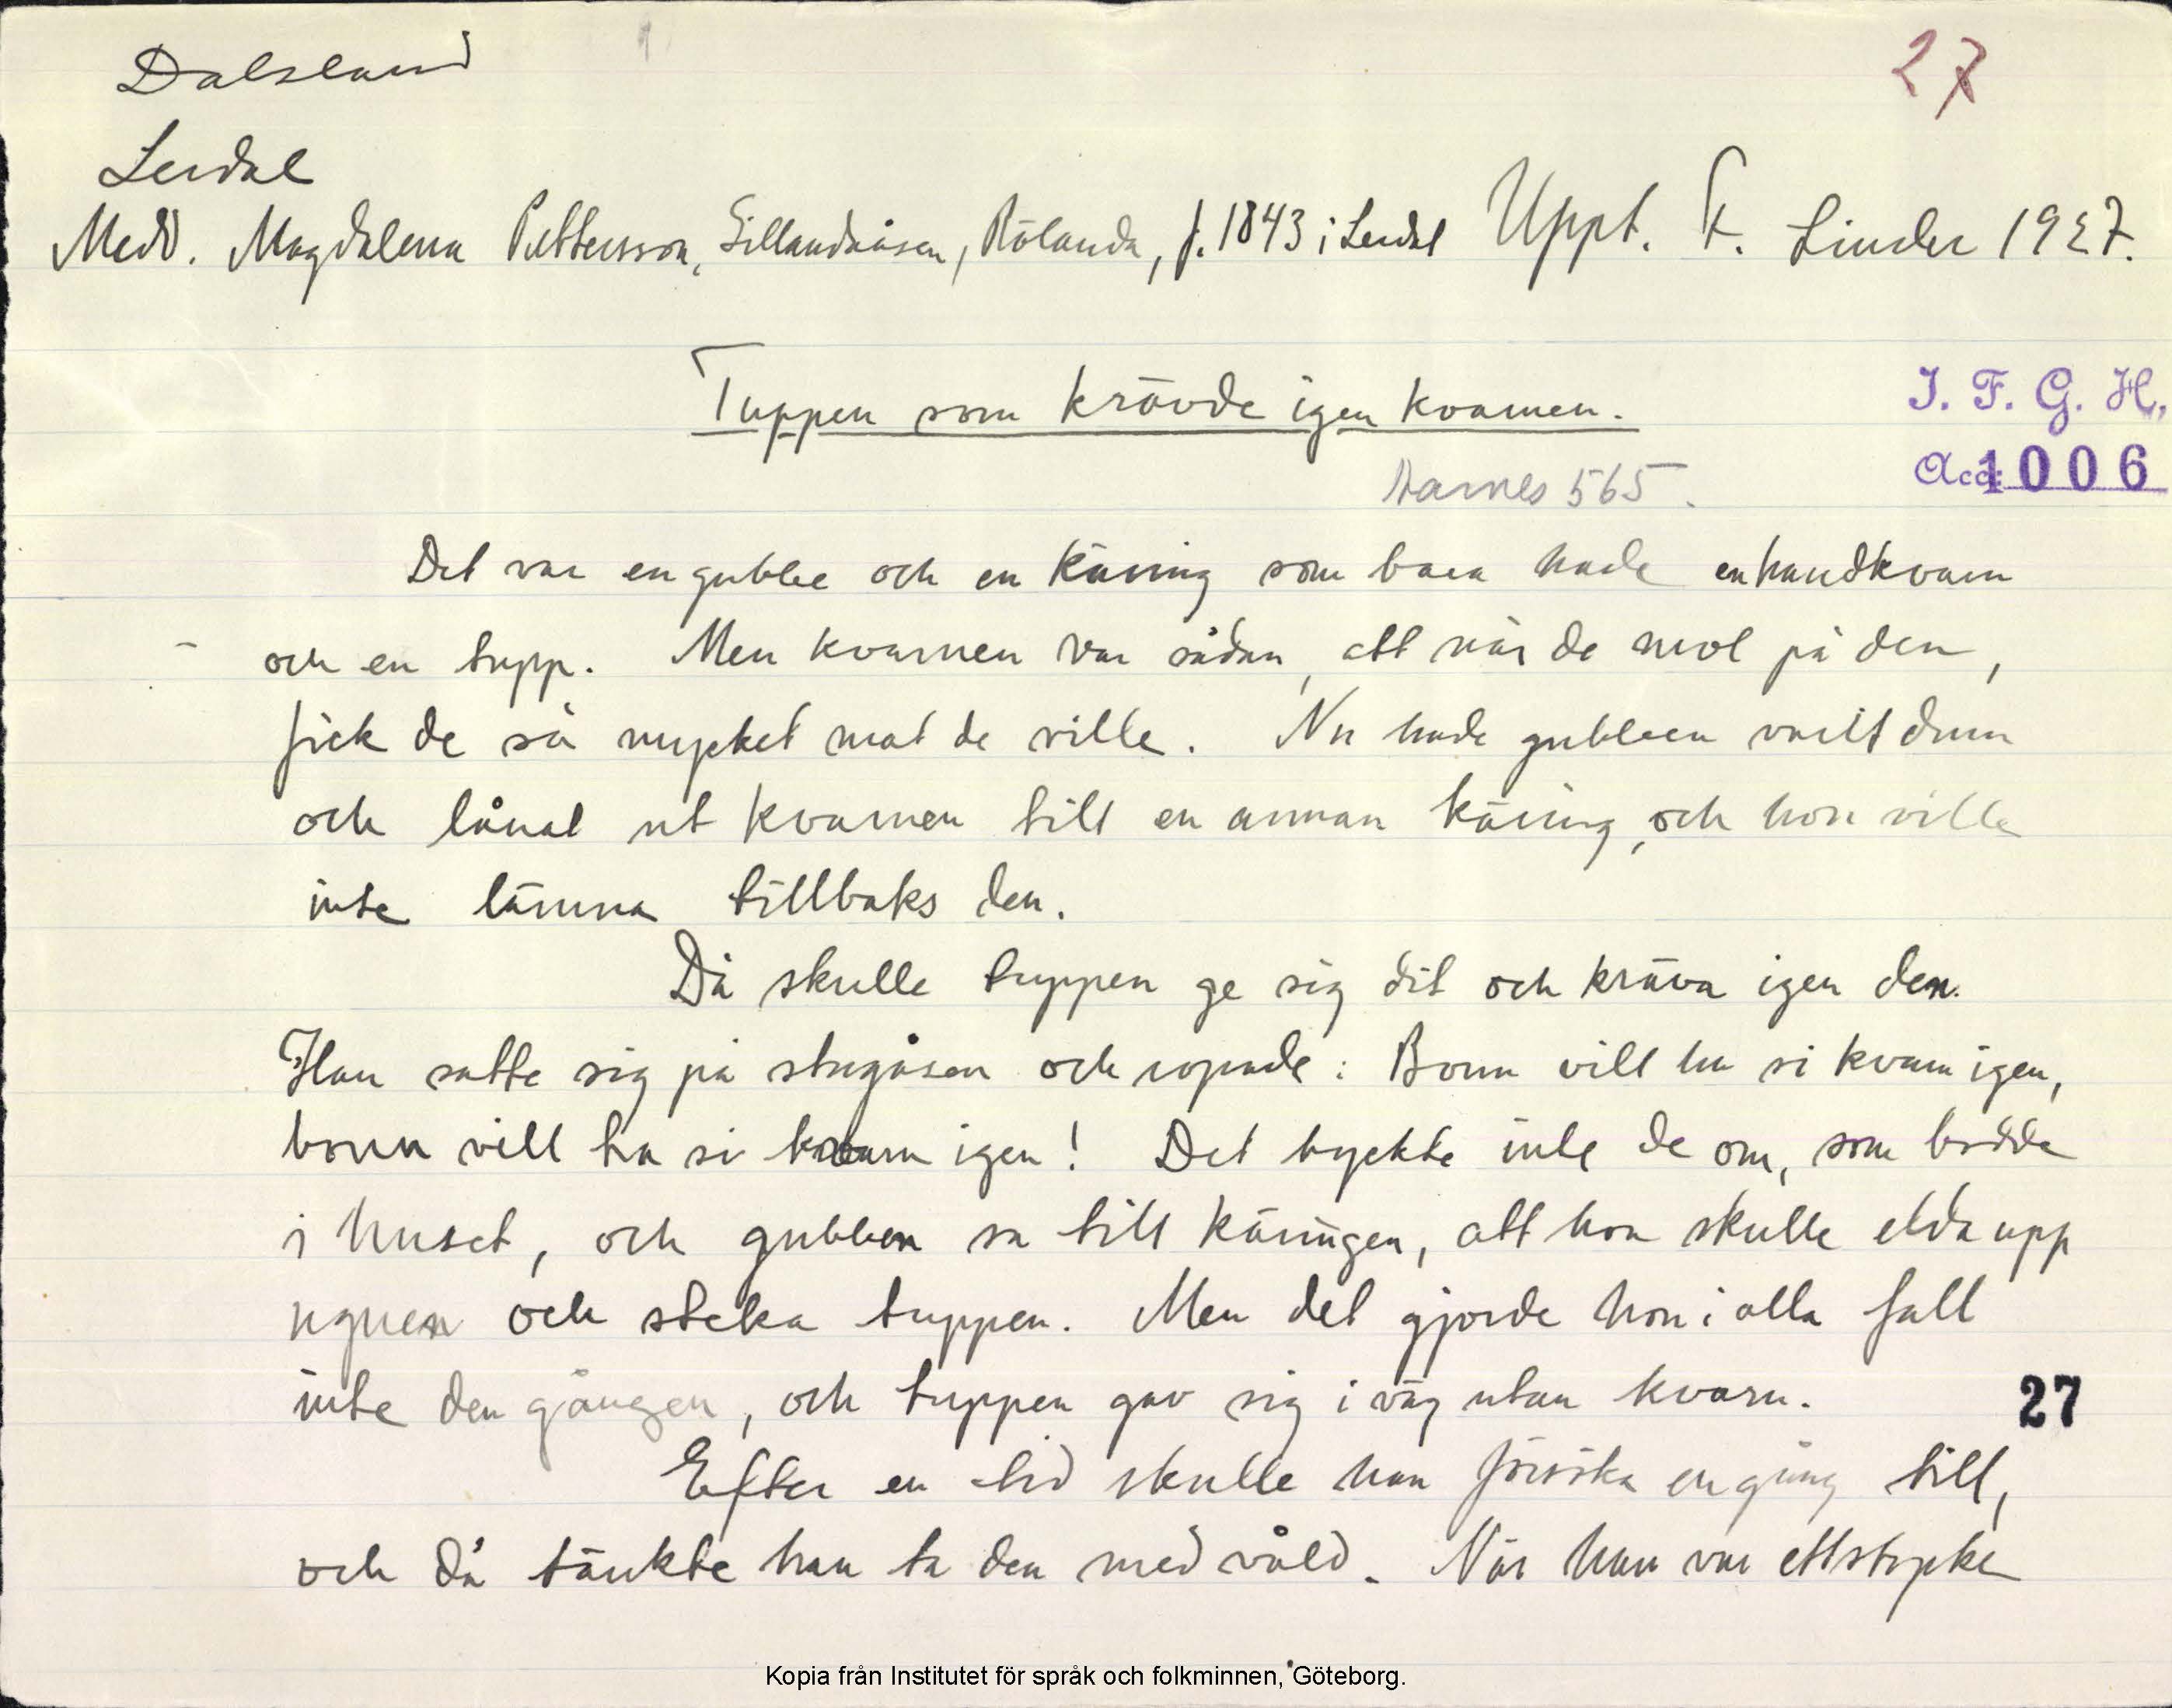 Dalsland
27
Lerdal
Medd. Magdalena Pettersson, Sillandaåsen, Rölanda, f. 1843 i Lerdal Uppt. K. Linder 1927.
Tuppen som krävde igen kvarnen.
I. F. G. H.
Acc. 1006
Aarnes 565.
Det var en gubbe och en käring som bara hade en handkvarn
och en tupp. Men kvarnen var sådan, att när de mol på den,
fick de så mycket mat de ville. Nu hade gubben varit dum
och lånat ut kvarnen till en annan käring, och hon ville
inte lämna tillbaks den.
Då skulle tuppen ge sig dit och kräva igen den.
Han satte sig på stugåsen och ropade: Bonn vill ha si kvarn igen,
bonn vill ha si kvarn igen! Det tyckte inte de om, som bodde
i huset, och gubben sa till käringen, att hon skulle elda upp
ugnen och steka tuppen. Men det gjorde hon i alla fall
inte den gången, och tuppen gav sig i väg utan kvarn.
27
Efter en tid skulle han försöka en gång till,
och då tänkte han ta den med våld. När han var ett stycke
Kopia från Institutet för språk och folkminnen, Göteborg.